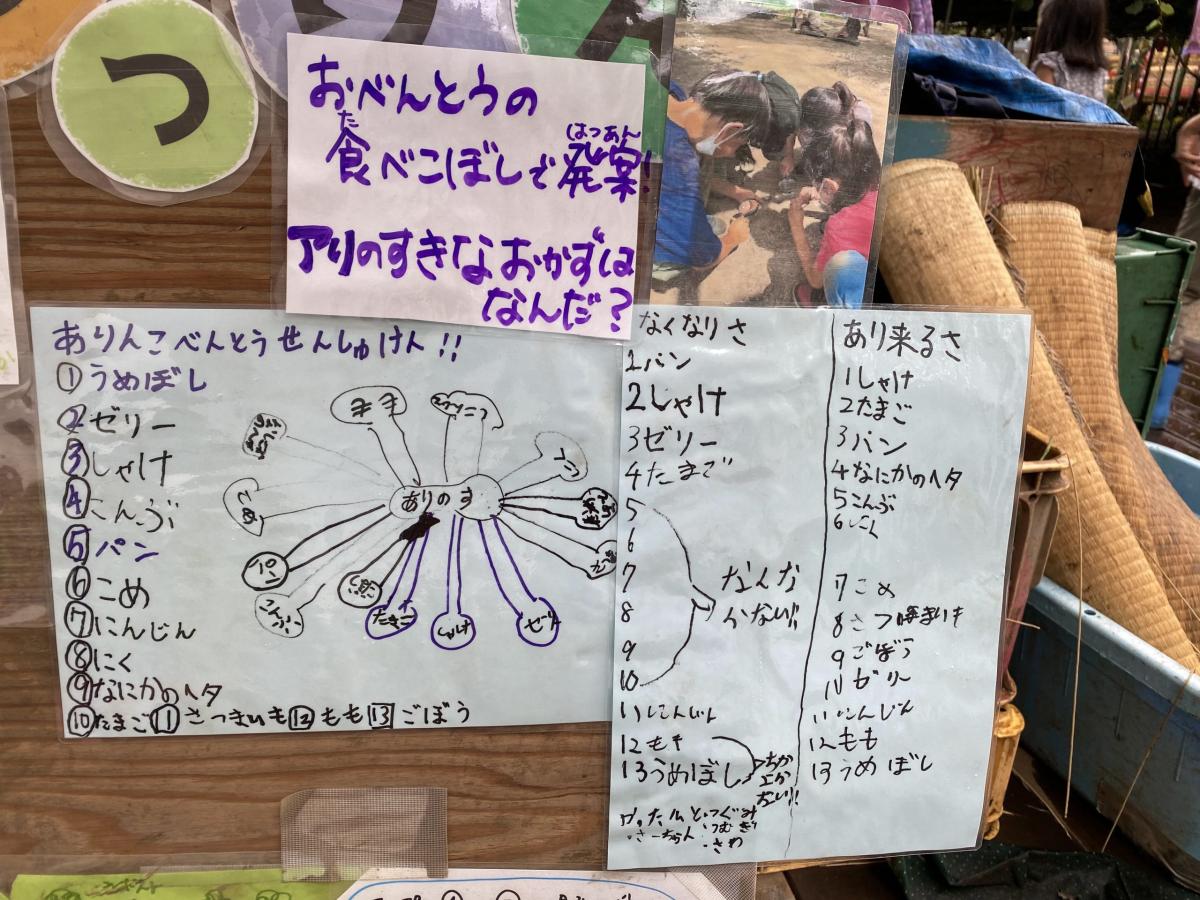 つ
おべんとうの
食べこぼしで発案!
た
はつあん
アリのすきなおかずは
なんだ?
ありんこべんとうせんしゅけん!!
①うめぼし
②ゼリー
③しゃけ
④こんぶ
⑤パン
⑥こめ
⑦にんじん
⑧にく
⑨なにかのヘタ
⑩たまご⑪さつまいも⑫もも⑬ごぼう
ありのす
もも
こめ
パン
たまご
しゃけ
ゼリー
なくなりさ
1パン
2しゃけ
3ゼリー
4たまご
5
6
7
8
9
10
なんな
かない!!
11にんじん
12もも
13うめぼし
ちか
よか
ない!!
あり来るさ
1しゃけ
2たまご
3パン
4なにかのヘタ
5こんぶ
6にく
7こめ
8さつまいも
9ごぼう
10ゼリー
11にんじん
12もも
13うめぼし
つむぎ
さわ